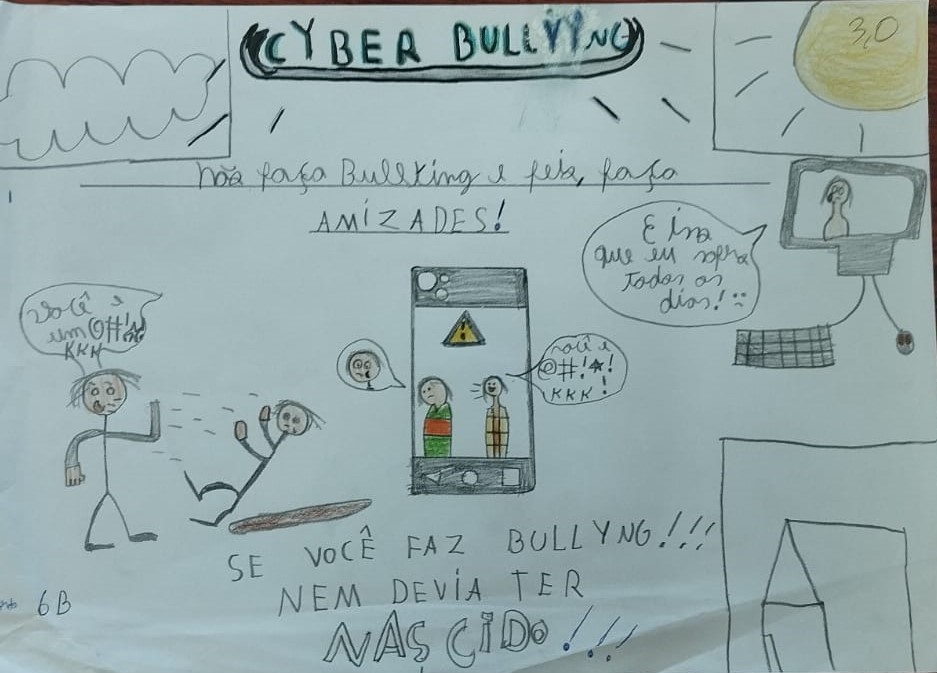 CYBER BULLYING
3,0
não faça Bullking e feia, faça
AMIZADES!
E isso
que eu sofro
todos os
dias!
Você é
um @#!☆
KKK
você é
@#!★!
KKK!
SE VOCÊ FAZ BULLYNG!!!
NEM DEVIA TER
NASCIDO!!!
6B